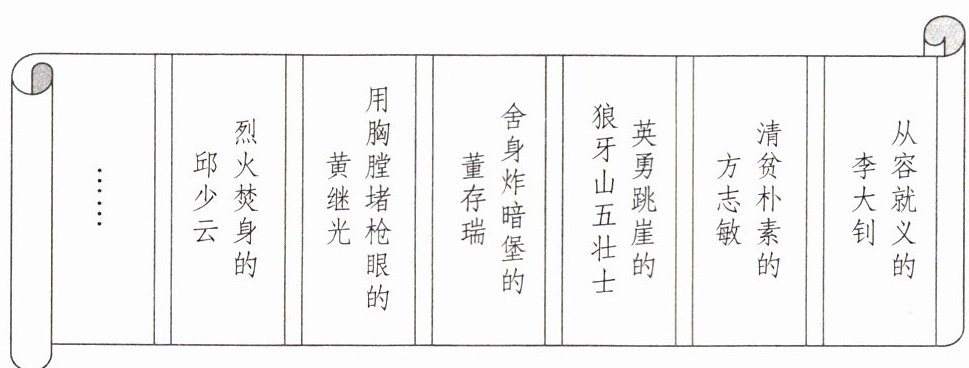 从容就义的
李大钊
清贫朴素的
方志敏
英勇跳崖的
狼牙山五壮士
舍身炸暗堡的
董存瑞
用胸膛堵枪眼的
黄继光
烈火焚身的
邱少云
……